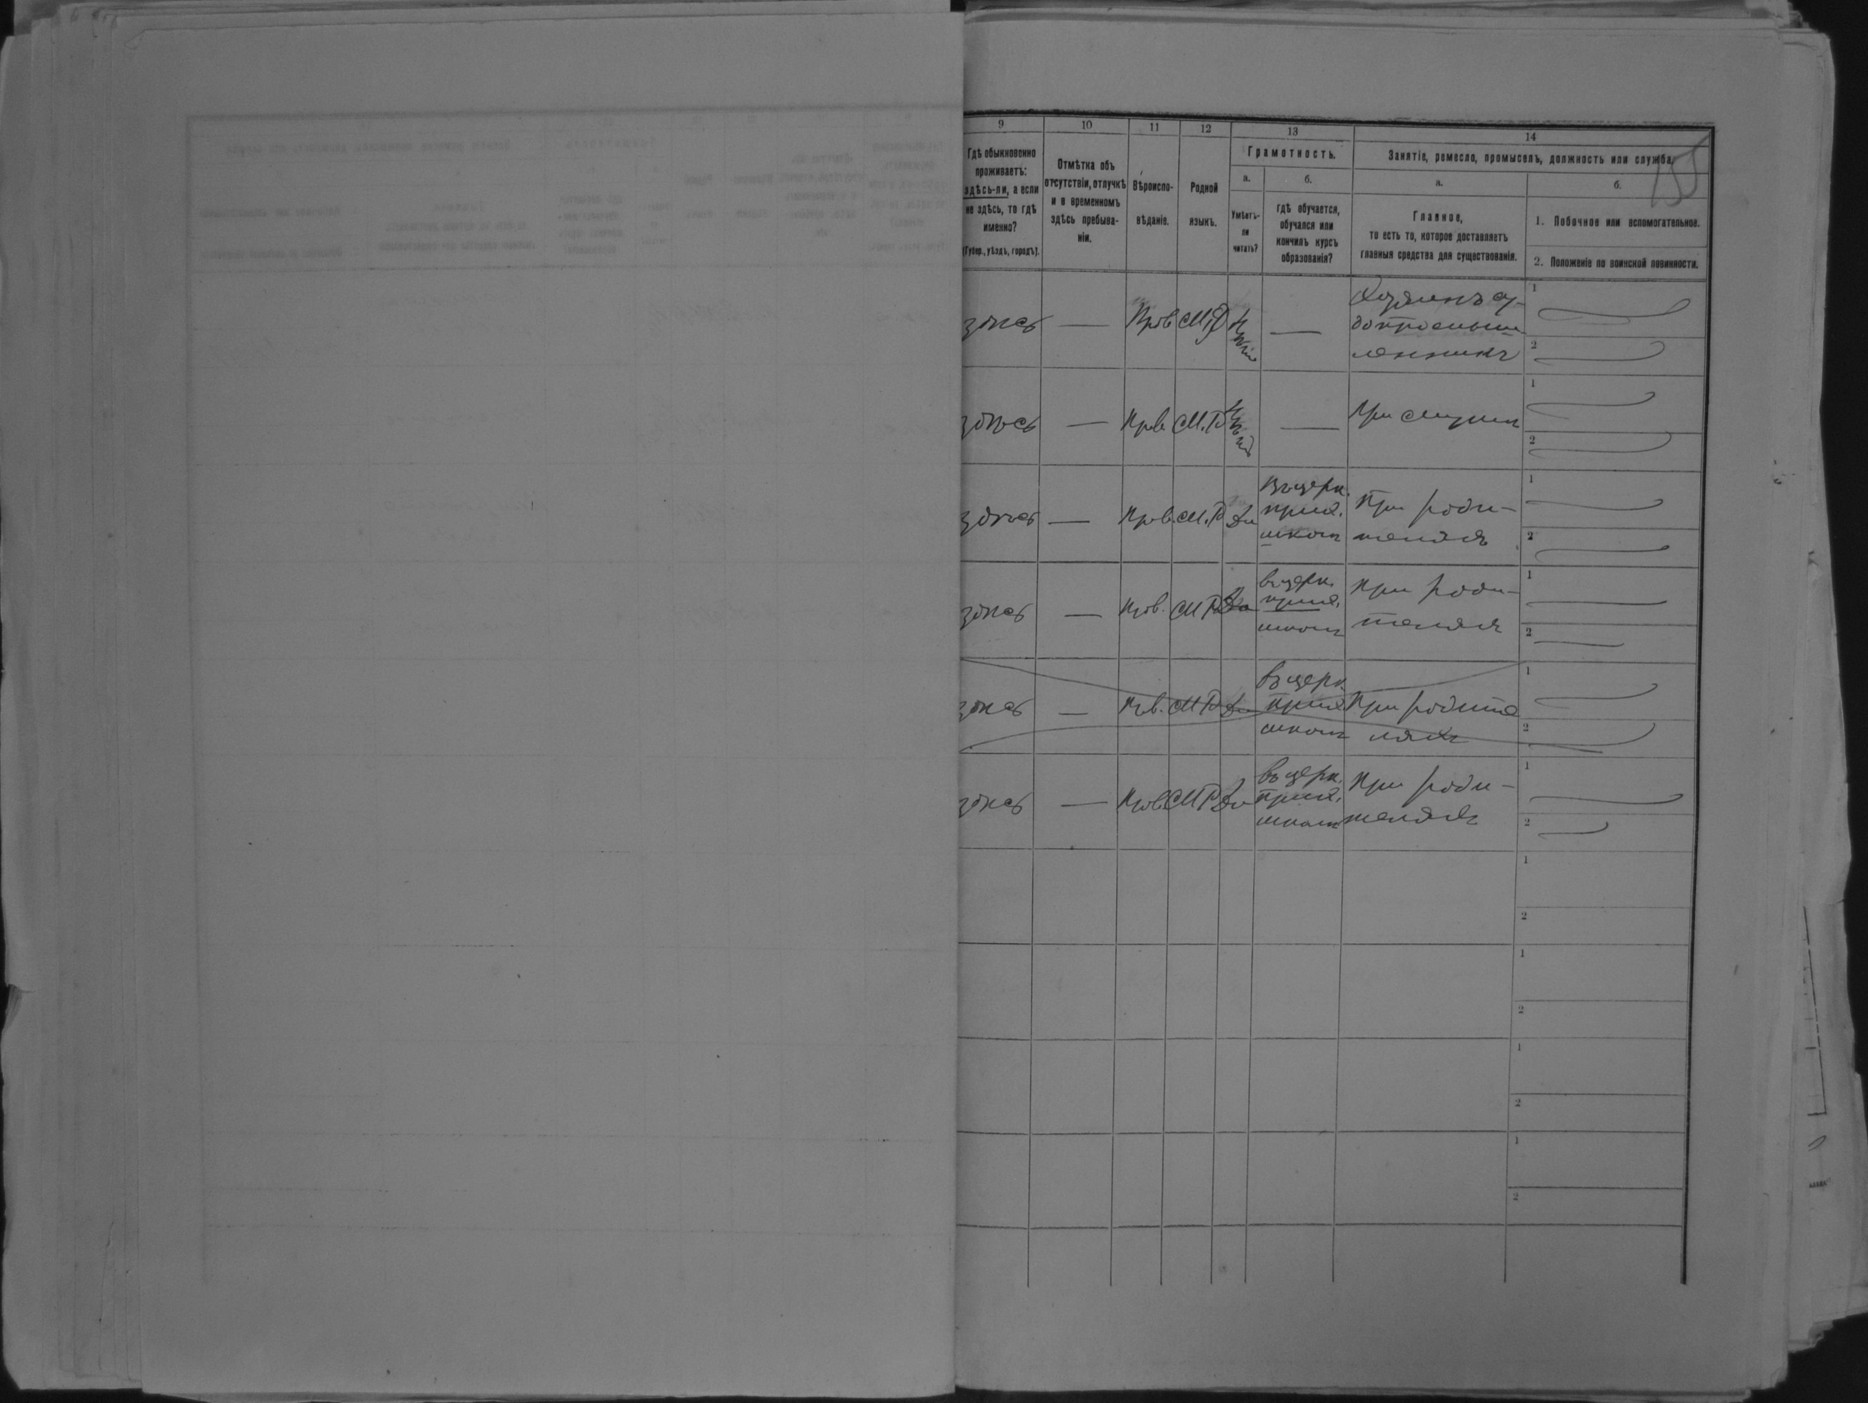 155
9 10 11 12 13 14
Гдѣ обыкновенно
проживаетъ:
здѣсь-ли, а если
не здѣсь, то гдѣ
именно?
(Губер., уѣздъ, городъ).
Отмѣтка объ
отсутствіи, отлучкѣ
и о временномъ
здѣсь пребыва-
ніи.
Вѣроиспо-
вѣданіе.
Родной
языкъ.
Грамотность.
а.
Умѣетъ-
ли
читать?
б.
гдѣ обучается,
обучался или
кончилъ курсъ
образованія?
Занятіе, ремесло, промыселъ, должность или служба.
а.
Главное,
то есть то, которое доставляетъ
главныя средства для существованія.
б.
1. Побочное или вспомогательное.
2. Положеніе по воинской повинности.
здѣсь — Прав М.Р —
1
2
здѣсь — Прав. М.Р — При мужѣ
1
2
здѣсь — Прав. М.Р Да
въ церк.
прих.
школѣ
При роди-
теляхъ
1
2
здѣсь — Прав. М.Р Да
въ церк.
прих.
школѣ
При роди-
теляхъ
1
2
здѣсь — Прв. М.Р Да
въ церк.
прих
школѣ
При родите
ляхъ
1
2
здѣсь — Прав М.Р Да
въ церк.
прих.
школѣ
При роди-
теляхъ
1
2
1
2
1
2
1
2
1
2